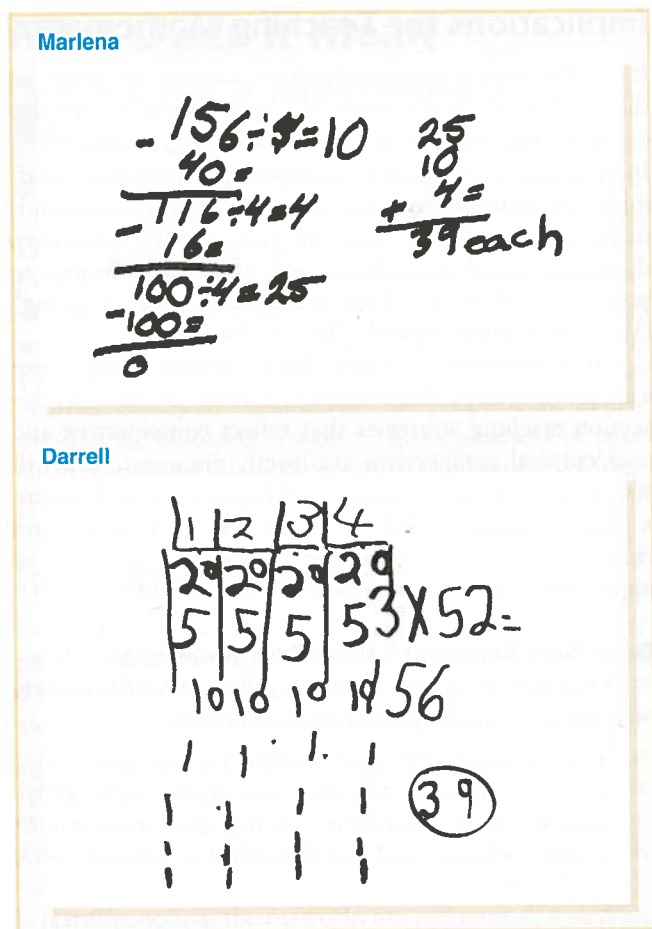 Marlena
- 156÷4=10
40=
116÷4=4
- 16=
100÷4=25
-100=
0
25
10
+ 4=
39 each
Darrell
1 2 3 4
20 20 20 20
5 5 5 5
3X52=
10 10 10 10
156
1 1 1 1
1 1 1 1
1 1 1 1
1 1 1 1
39